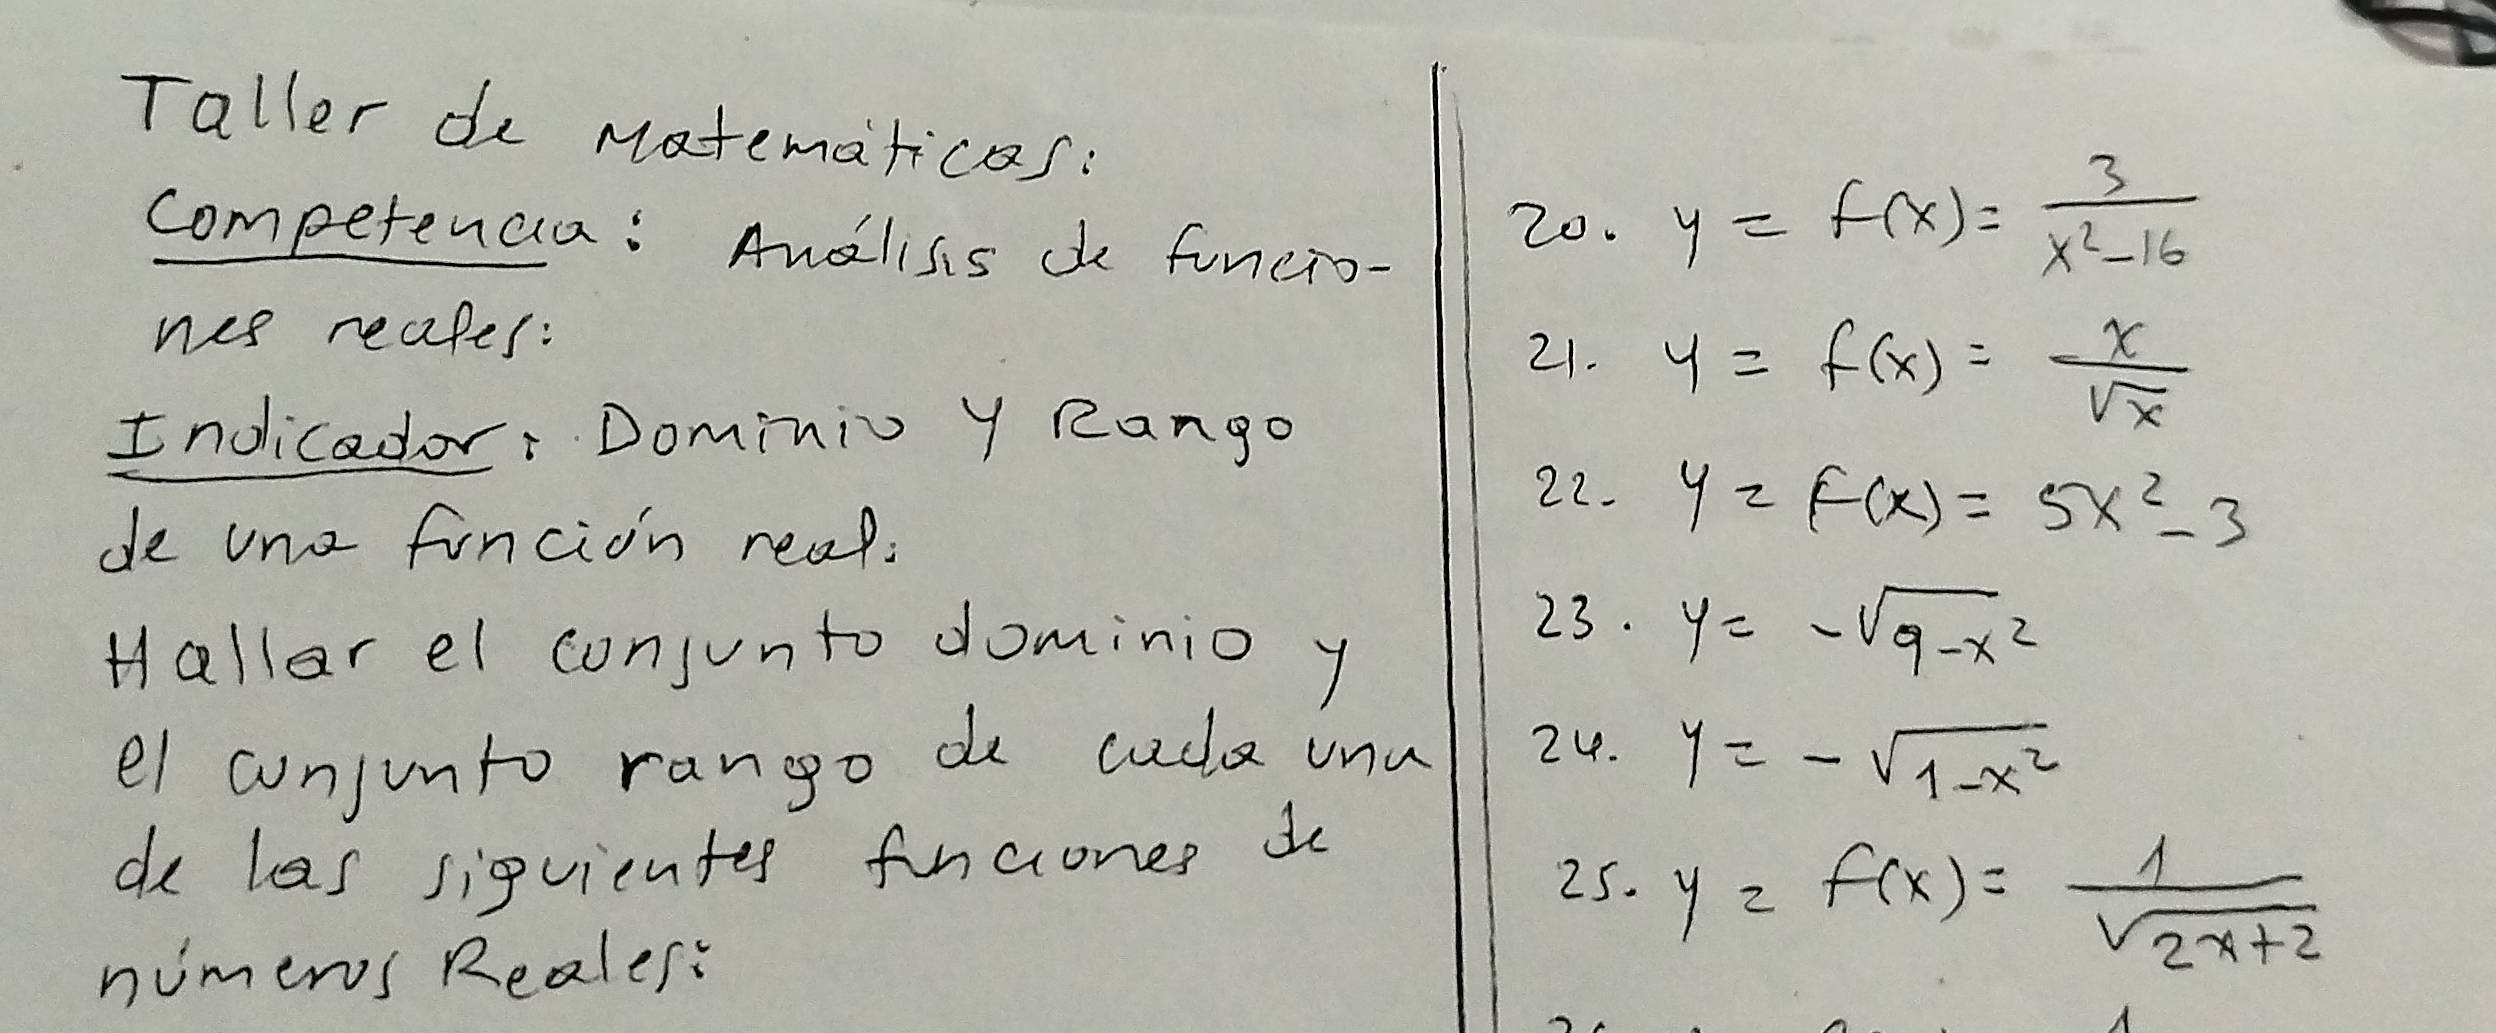 Taller de Matemáticas:
Competencia: Análisis de funcio-
nes reales:
Indicador: Dominio y Rango
de una función real.
Hallar el conjunto dominio y
el conjunto rango de cada una
de las siguientes funciones de
números Reales:
20. y = f(x) = 3/(x²-16)
21. y = f(x) = x/√x
22. y = f(x) = 5x²-3
23. y = -√(9-x²)
24. y = -√(1-x²)
25. y = f(x) = 1/√(2x+2)